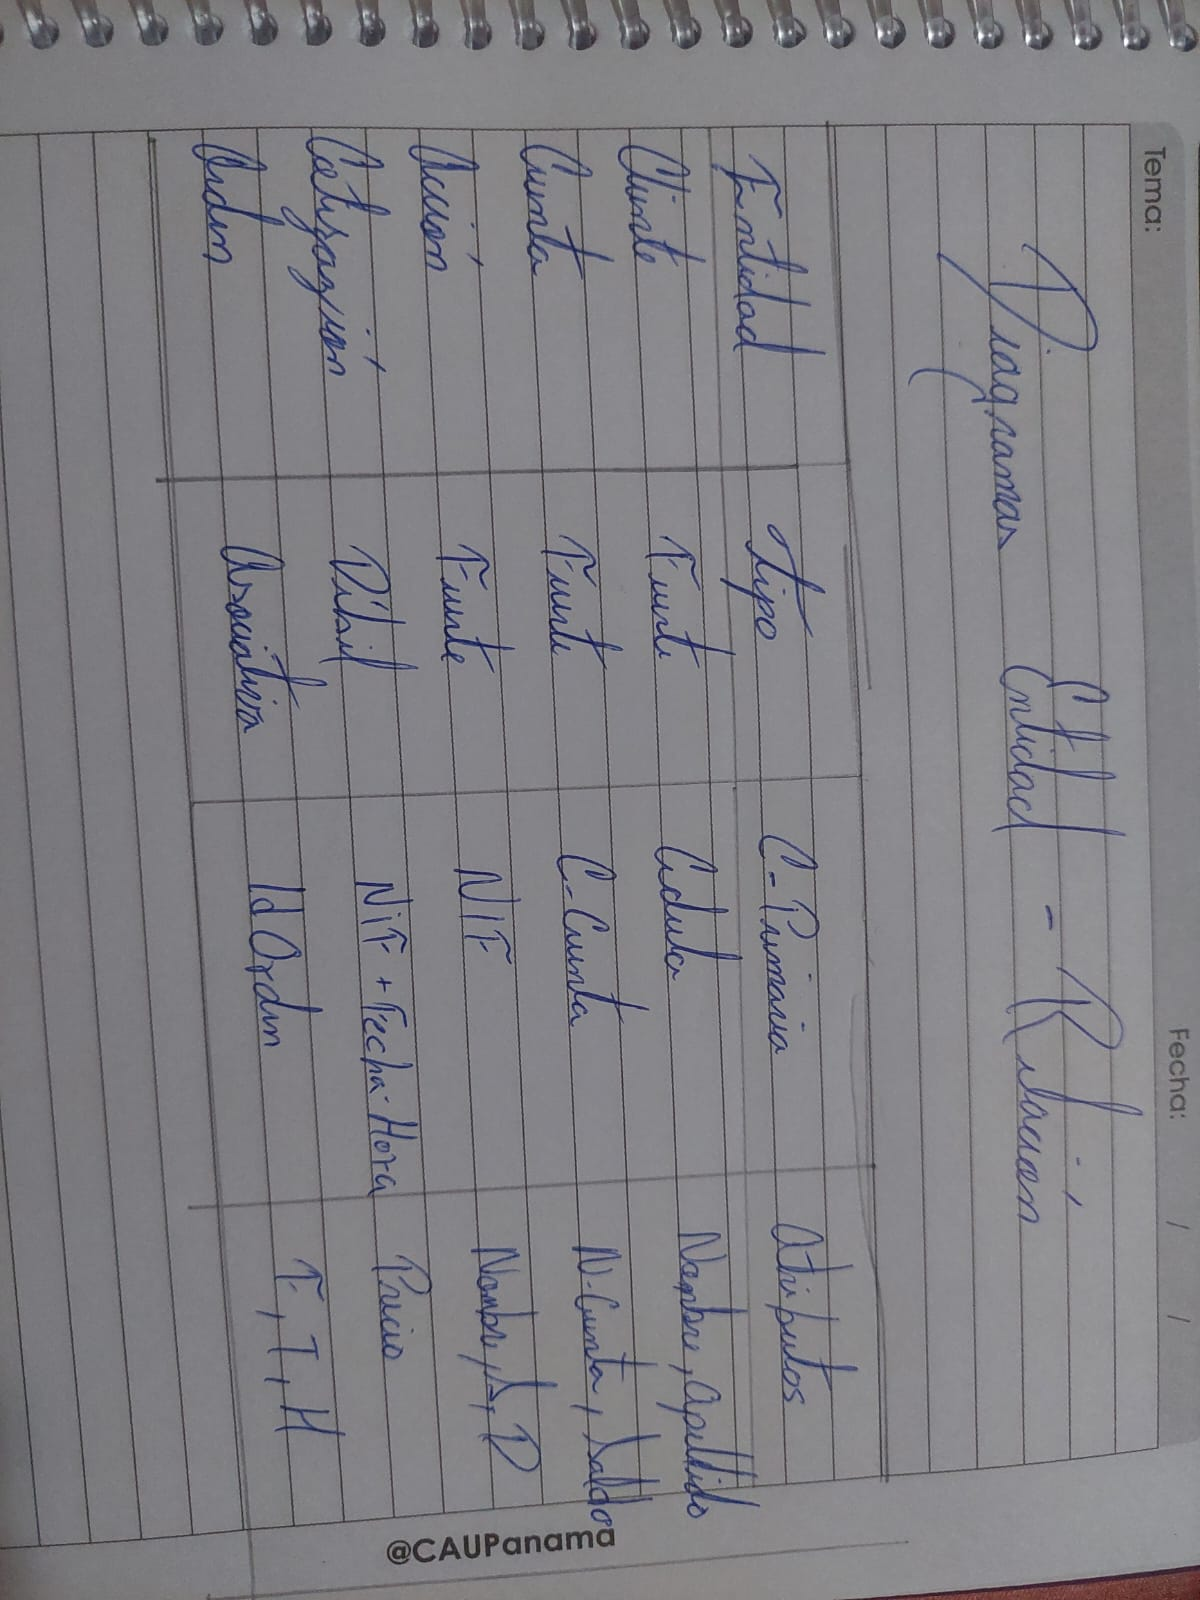 Tema:
Fecha: / /
Diagramas Entidad - Relación
Entidad Tipo C-Primaria Atributos
Cliente Fuerte Cédula Nombre, Apellido
Cuenta Fuerte C-Cuenta N-Cuenta, Saldo
Acción Fuerte NIF Nombre, S, D
Cotización Débil NiF + Fecha-Hora Precio
Orden Asociativa Id Orden F, T, H
@CAUPanama